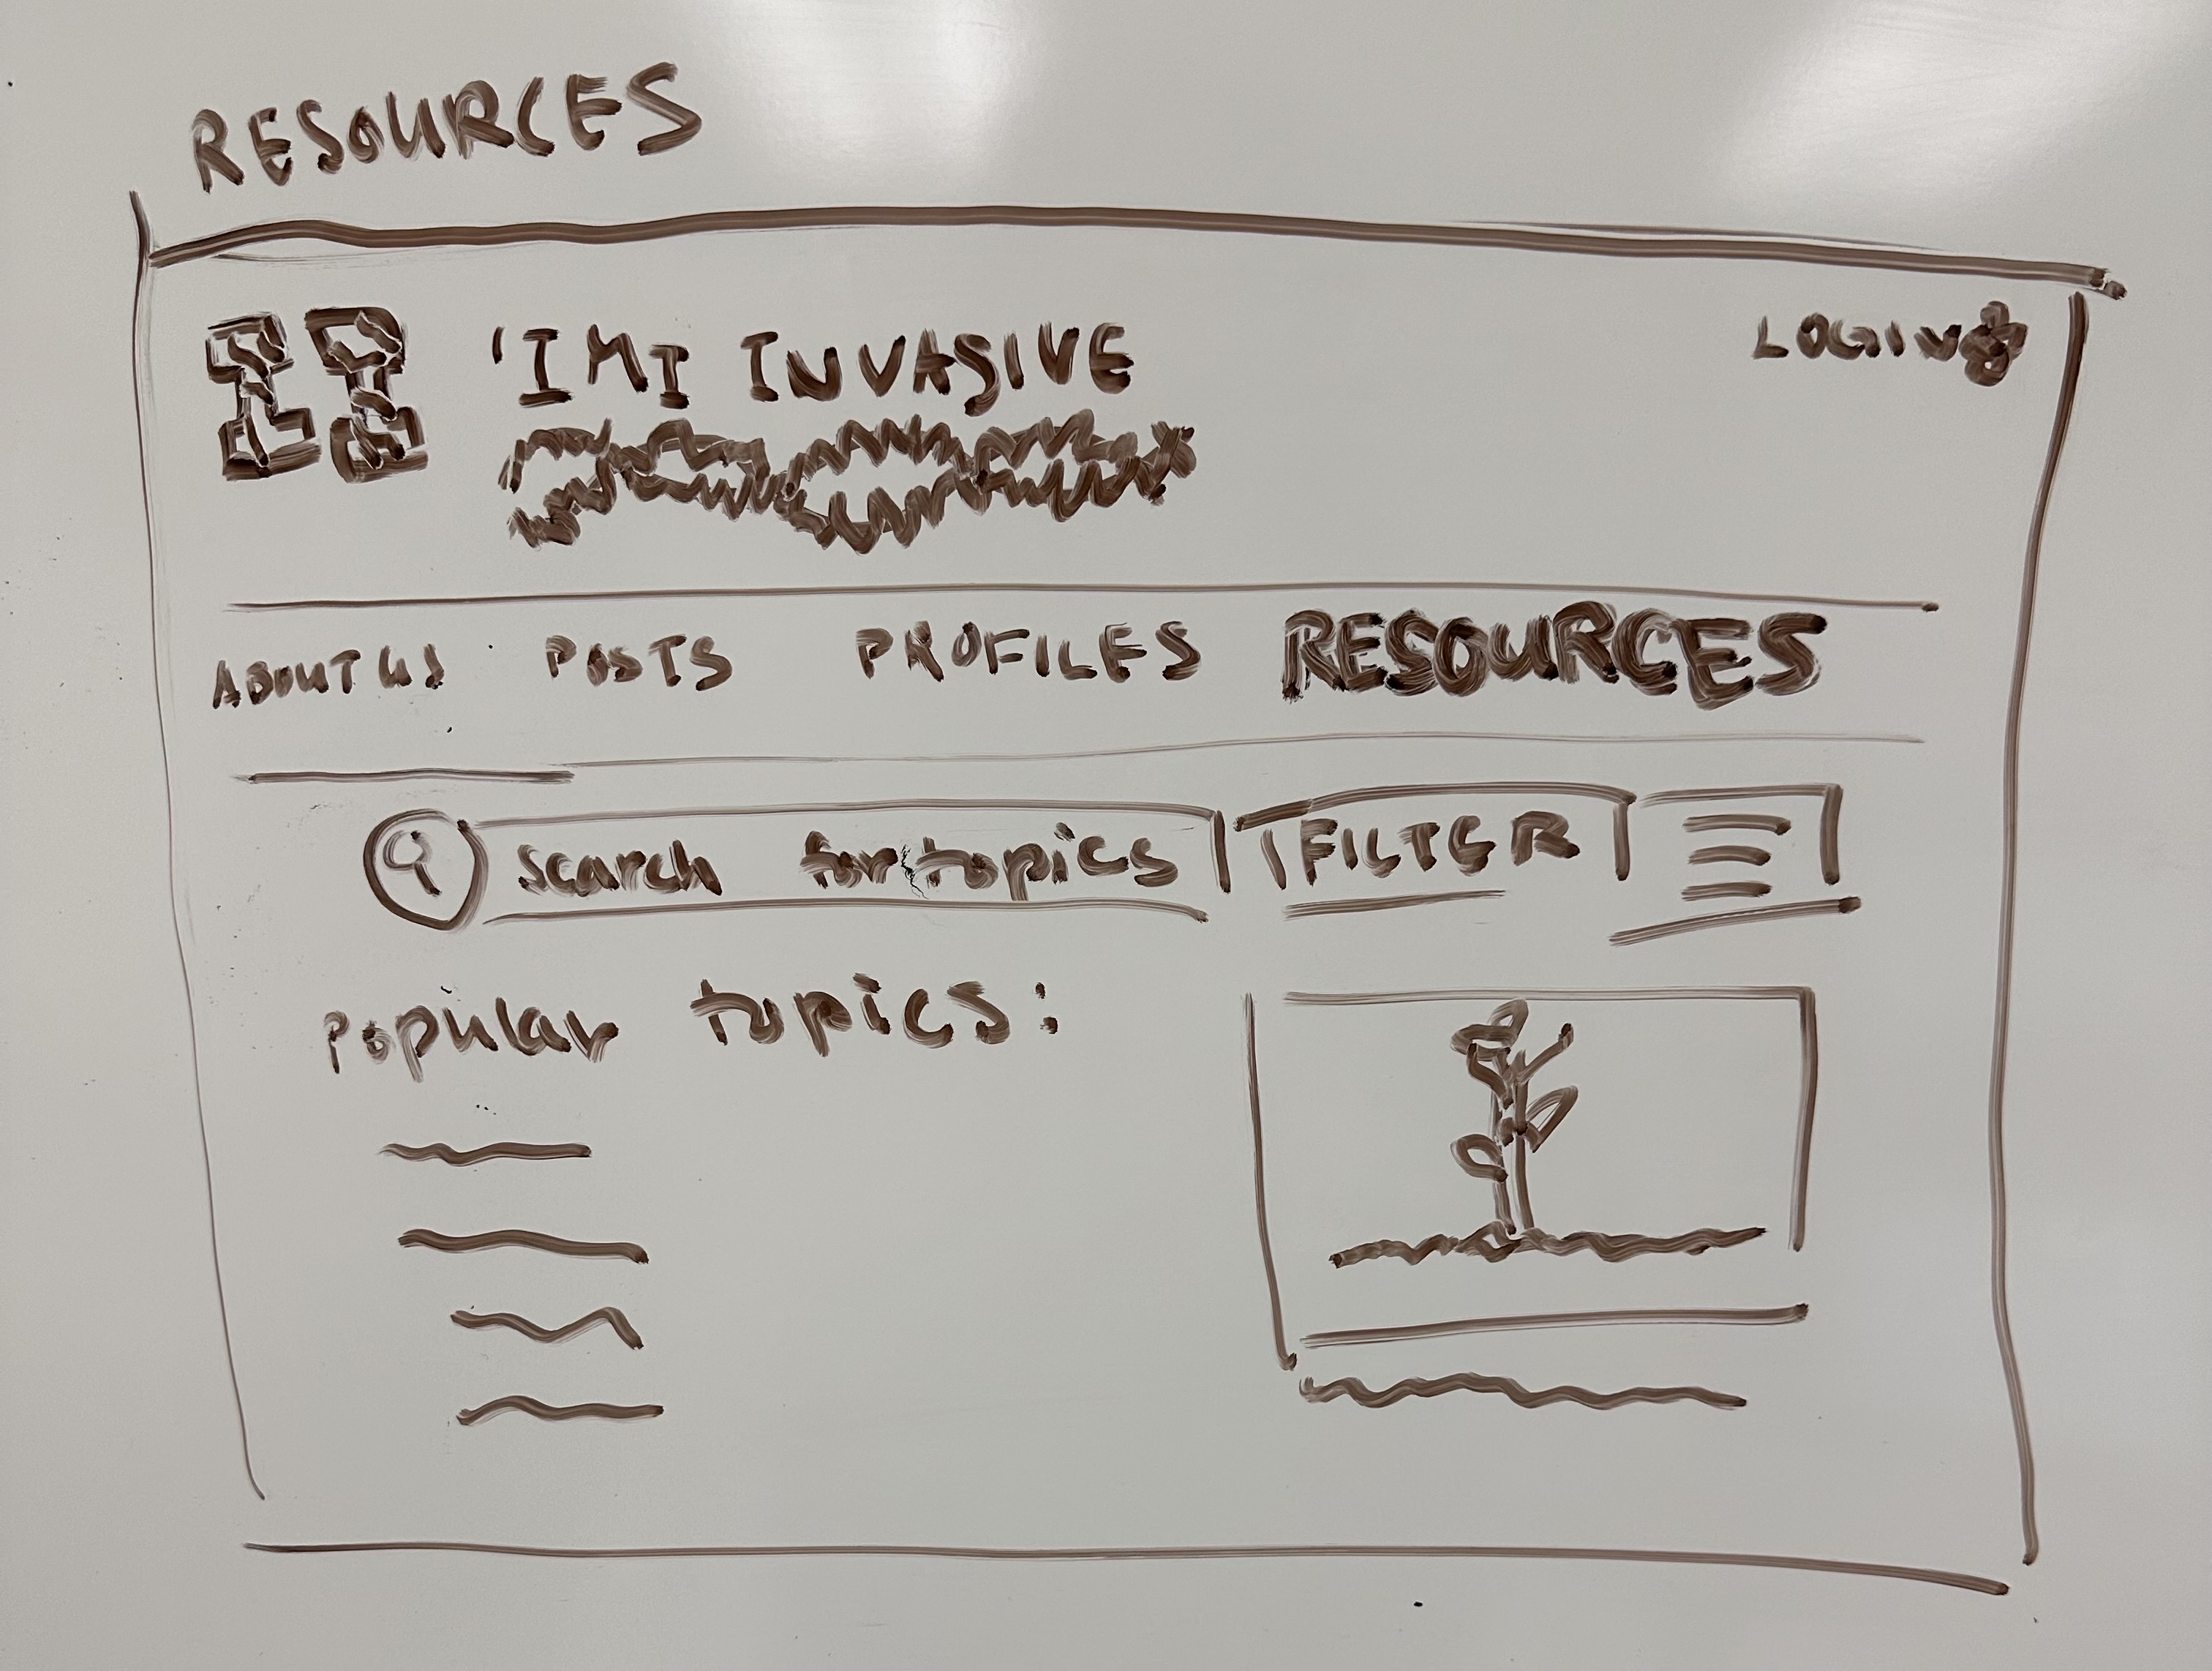 RESOURCES
'IMI INVASIVE
LOGIN
ABOUT US POSTS PROFILES RESOURCES
Search for topics FILTER
Popular topics: